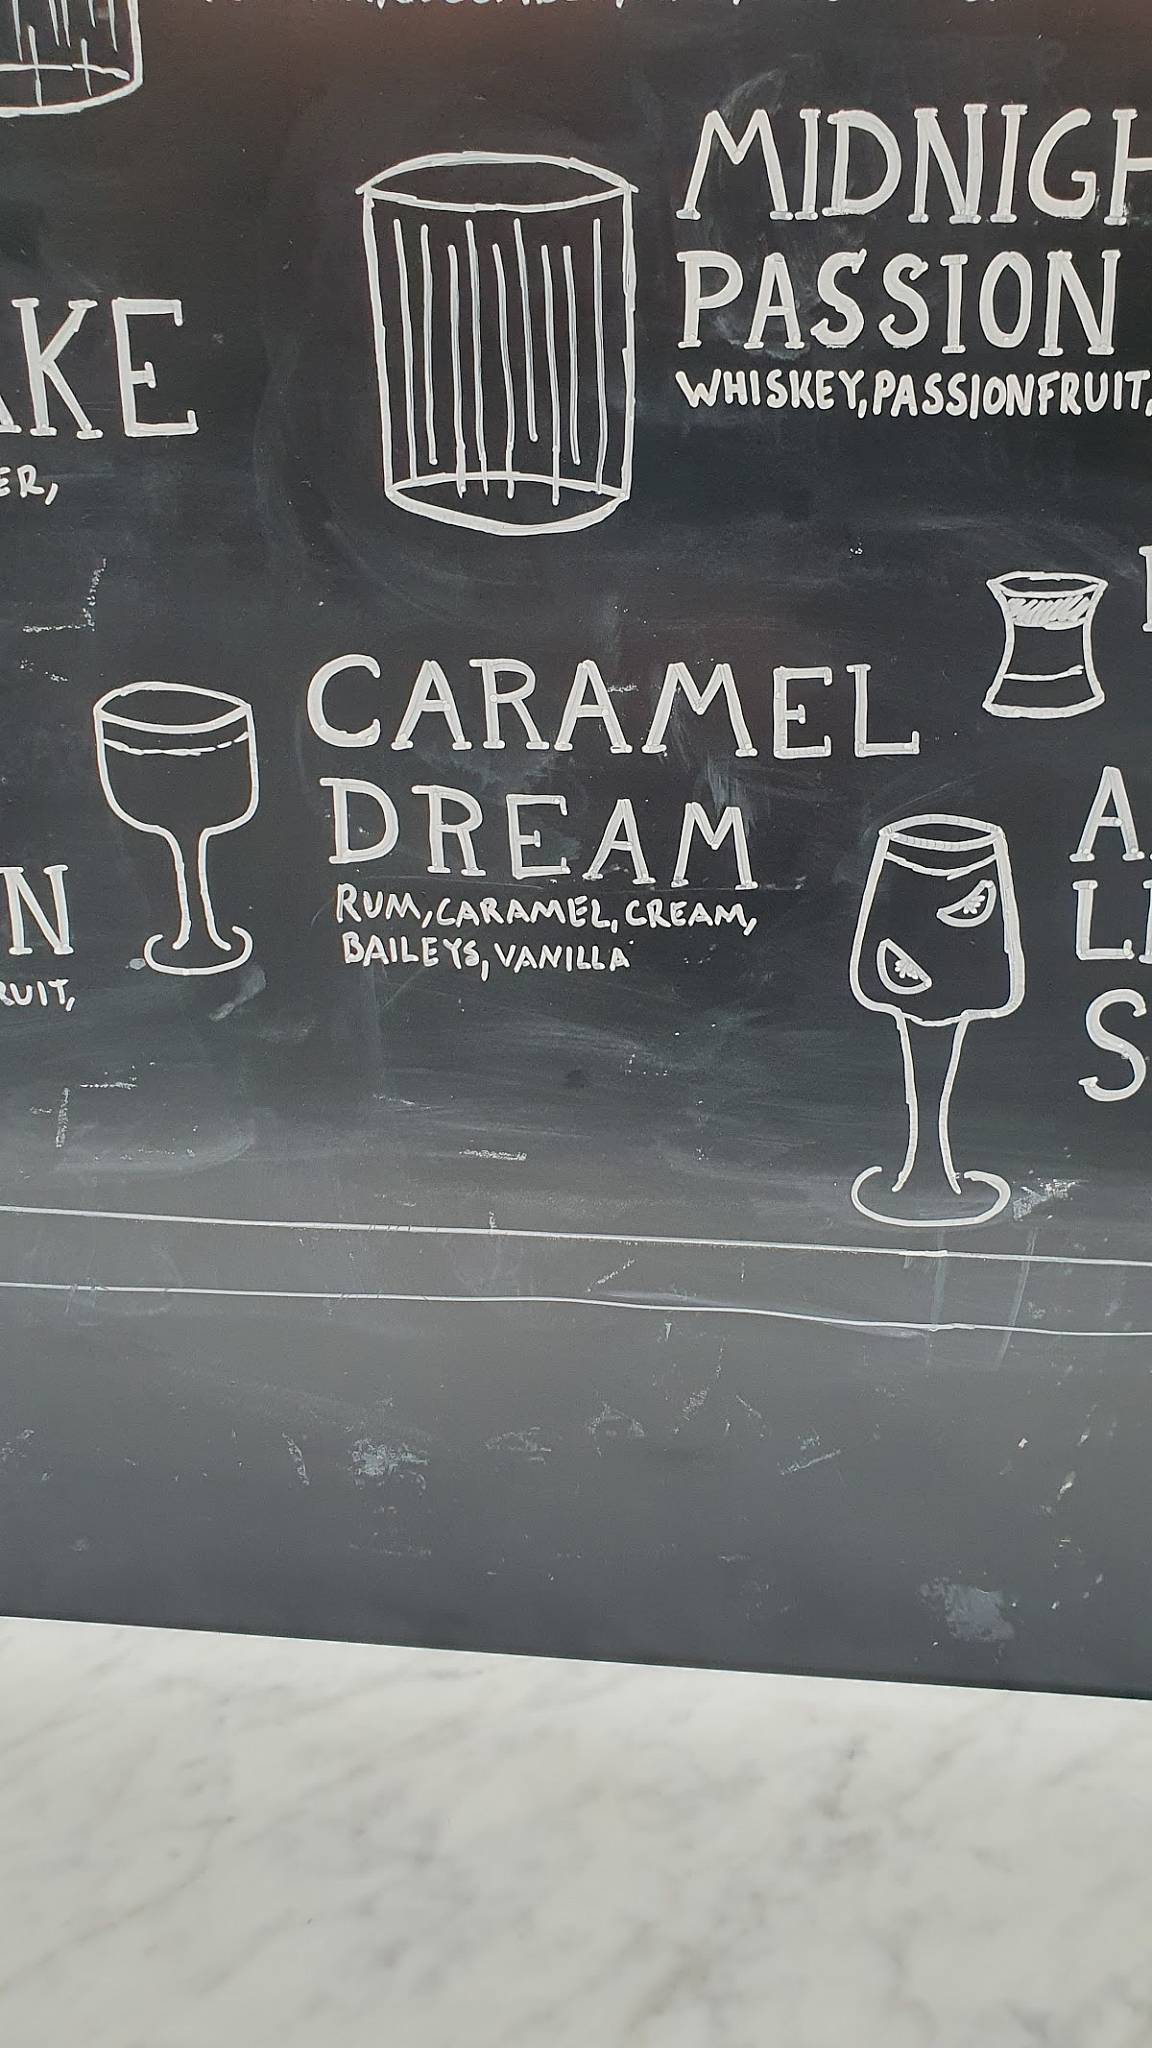 MIDNIGH
PASSION
WHISKEY, PASSIONFRUIT,
AKE
ER,
CARAMEL
DREAM
RUM, CARAMEL, CREAM,
BAILEYS, VANILLA
N
RUIT,
A
L
S